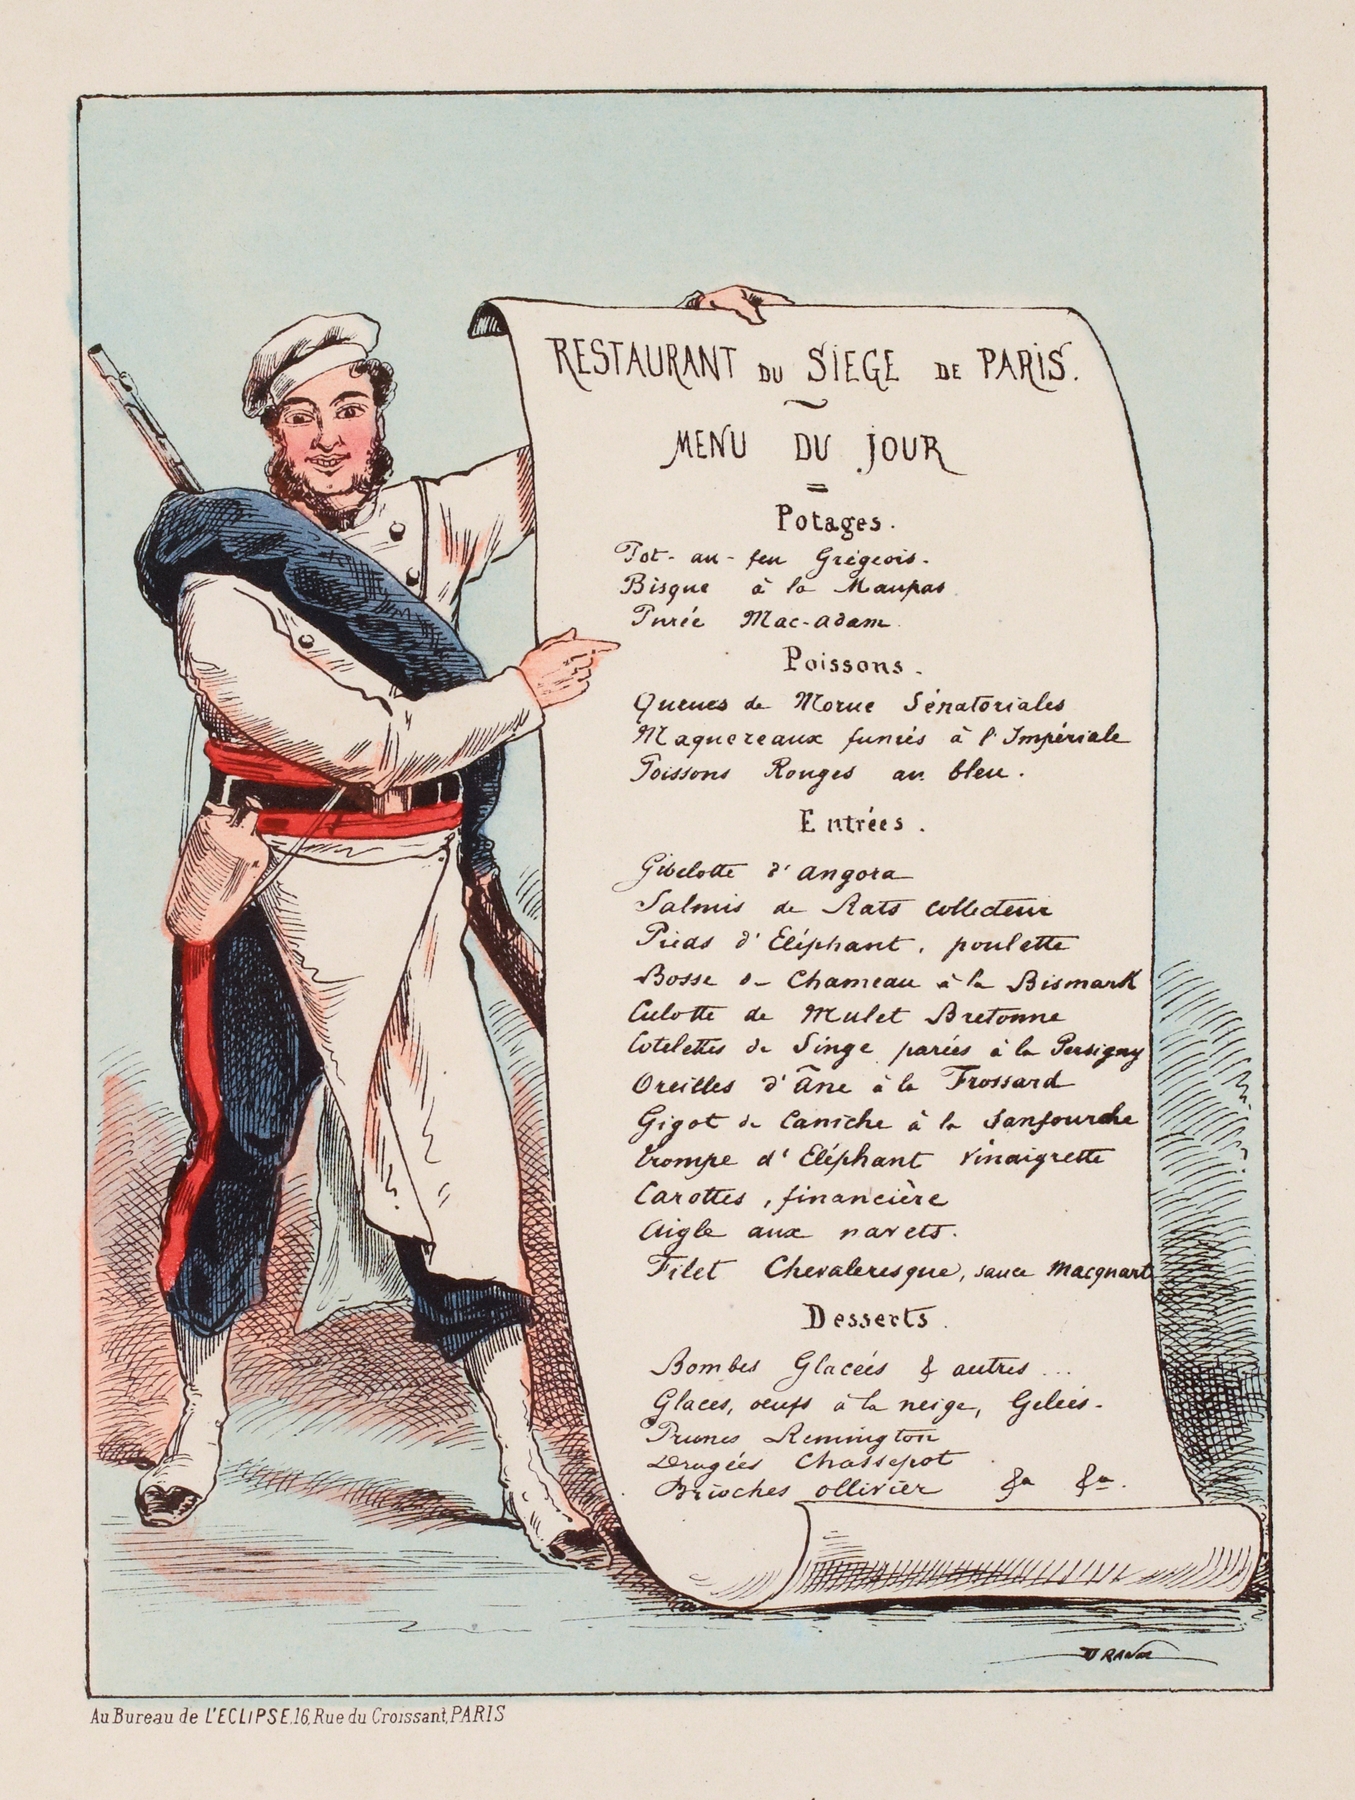 RESTAURANT DU SIEGE DE PARIS.
MENU DU JOUR
Potages.
Pot-au-feu Grégeois.
Bisque à la Maupas
Purée Mac-adam
Poissons.
Queues de Morue Sénatoriales
Maquereaux fumés à l'Impériale
Poissons Rouges au bleu.
Entrées.
Gibelotte d'angora
Salmis de Rats collecteur
Pieds d'Eléphant, poulette
Bosse de Chameau à la Bismark
Culotte de Mulet Bretonne
Cotelettes de Singe parées à la Persigny
Oreilles d'âne à la Frossard
Gigot de Caniche à la Sanfourche
Trompe d'Eléphant Vinaigrette
Carottes, financière
Aigle aux navets.
Filet Chevaleresque, sauce Macquart
Desserts.
Bombes Glacées & autres...
Glaces, oeufs à la neige, Gelées.
Prunes Remington
Dragées Chassepot
Brioches ollivier &a &a.
DRANER
Au Bureau de L'ECLIPSE.16, Rue du Croissant, PARIS